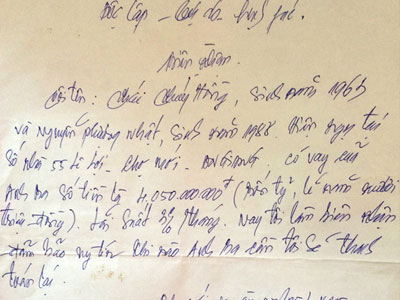 Độc lập - Tự do - hạnh phúc.
biên nhận.
tôi tên: Hồng, sinh năm 1965
và Nguyễn phương nhật, sinh năm 1988. hiện ngụ tại
Số nhà 55 Lê Lợi - chợ mới - có vay của
Anh Ba số tiền là 4,050.000.000đ (bốn tỷ, lẻ năm mươi
triệu đồng). Lãi suất 3%/tháng. Nay tôi làm biên nhận
đảm bảo uy tín khi nào Anh Ba cần tôi sẽ thanh
toán lại.